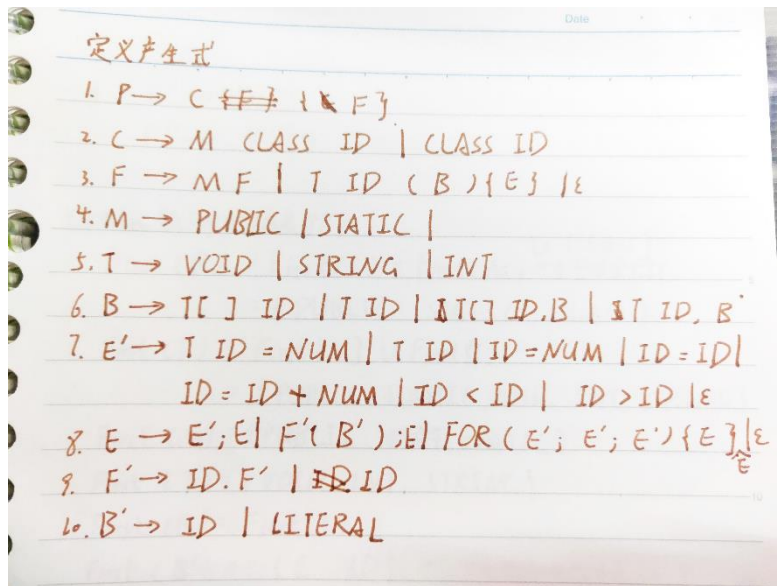 Date
定义产生式
1. P → C {F}
2. C → M CLASS ID | CLASS ID
3. F → M F | T ID (B){E} |ε
4. M → PUBLIC | STATIC |
5. T → VOID | STRING | INT
6. B → T[ ] ID | T ID | T[] ID,B | T ID, B
7. E' → T ID = NUM | T ID | ID=NUM | ID=ID|
ID = ID + NUM | ID < ID | ID > ID |ε
8. E → E';E| F'(B');E| FOR(E'; E'; E'){E}E|ε
9. F' → ID.F' | ID
10. B' → ID | LITERAL